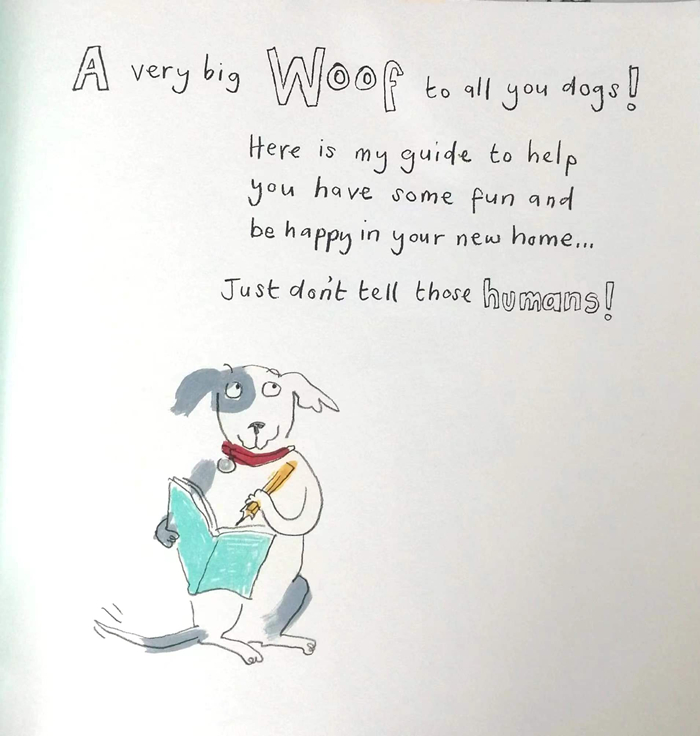 A very big Woof to all you dogs!
Here is my guide to help
you have some fun and
be happy in your new home...
Just don't tell those humans!